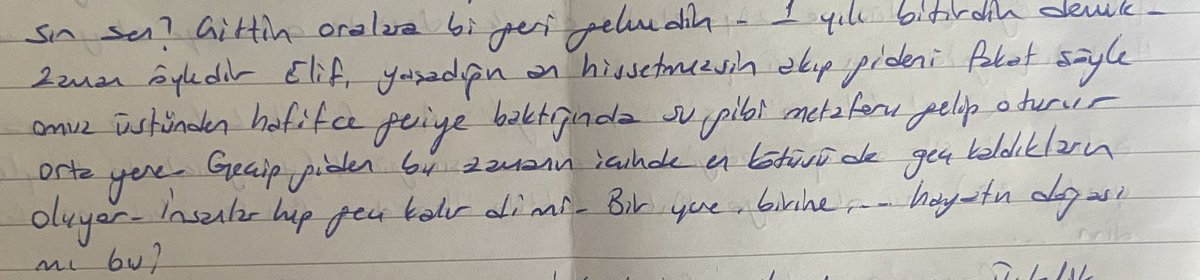 sın sen? Gittin oralara bi geri gelmedin - 1 yılı bitirdin demek -
Zaman öyledir Elif, yaşadığın an hissetmezsin akıp gideni fakat şöyle
omuz üstünden hafifce geriye baktığında su gibi metaforu gelip oturur
orta yere - Geçip giden bu zamanın içinde en kötüsü de geç kaldıkların
oluyor - İnsanlar hep geç kalır di mi - Bir yere, birine, ... hayatın doğası
mı bu?